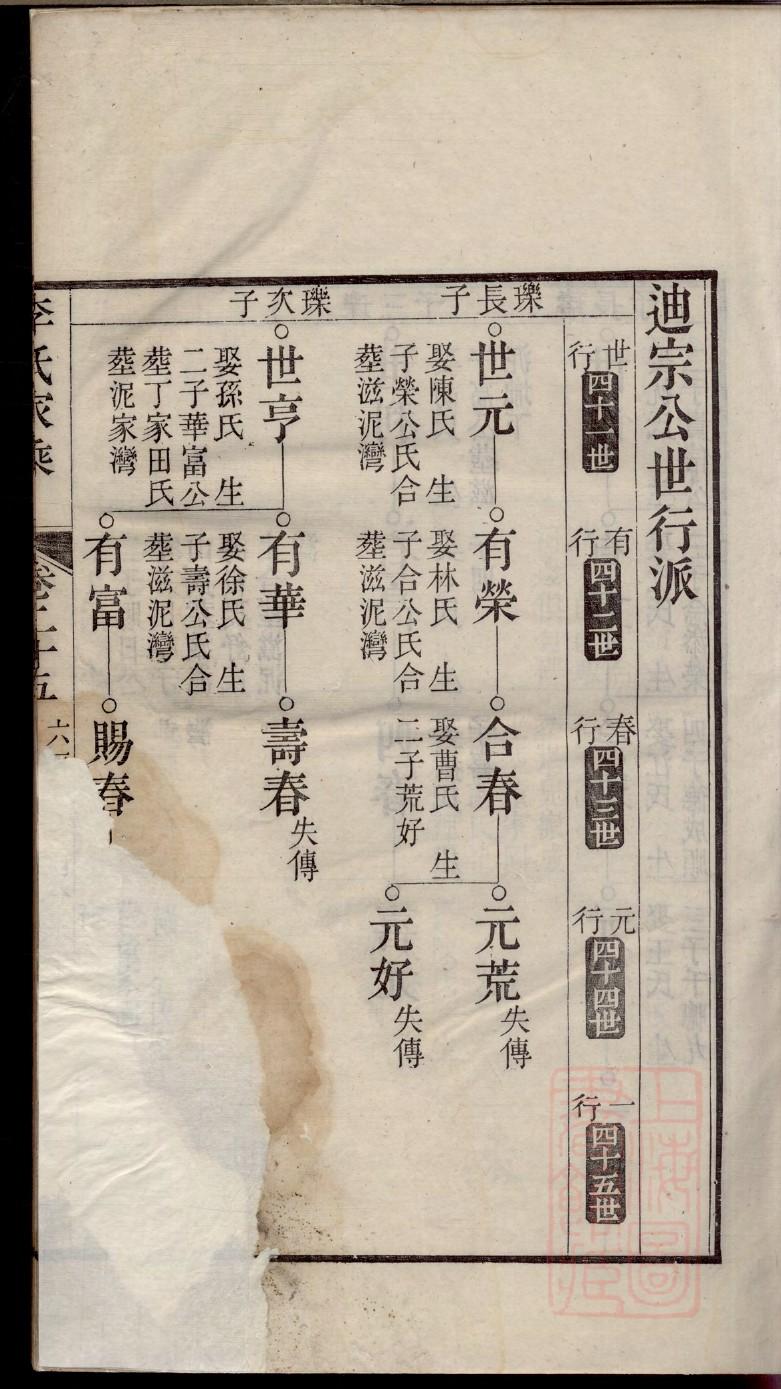 迪宗公世行派
世行 四十一世
有行 四十二世
春行 四十三世
元行 四十四世
一行 四十五世
瓅長子
世元
娶陳氏 生
子榮公氏合
葬滋泥灣
有榮
娶林氏 生
子合公氏合
葬滋泥灣
合春
娶曹氏 生
二子荒好
元荒
失傳
元好
失傳
瓅次子
世亨
娶孫氏 生
二子華富公
葬丁家田氏
葬泥家灣
有華
娶徐氏 生
子壽公氏合
葬滋泥灣
壽春
失傳
有富
賜春
李氏家乘
卷二十五
六